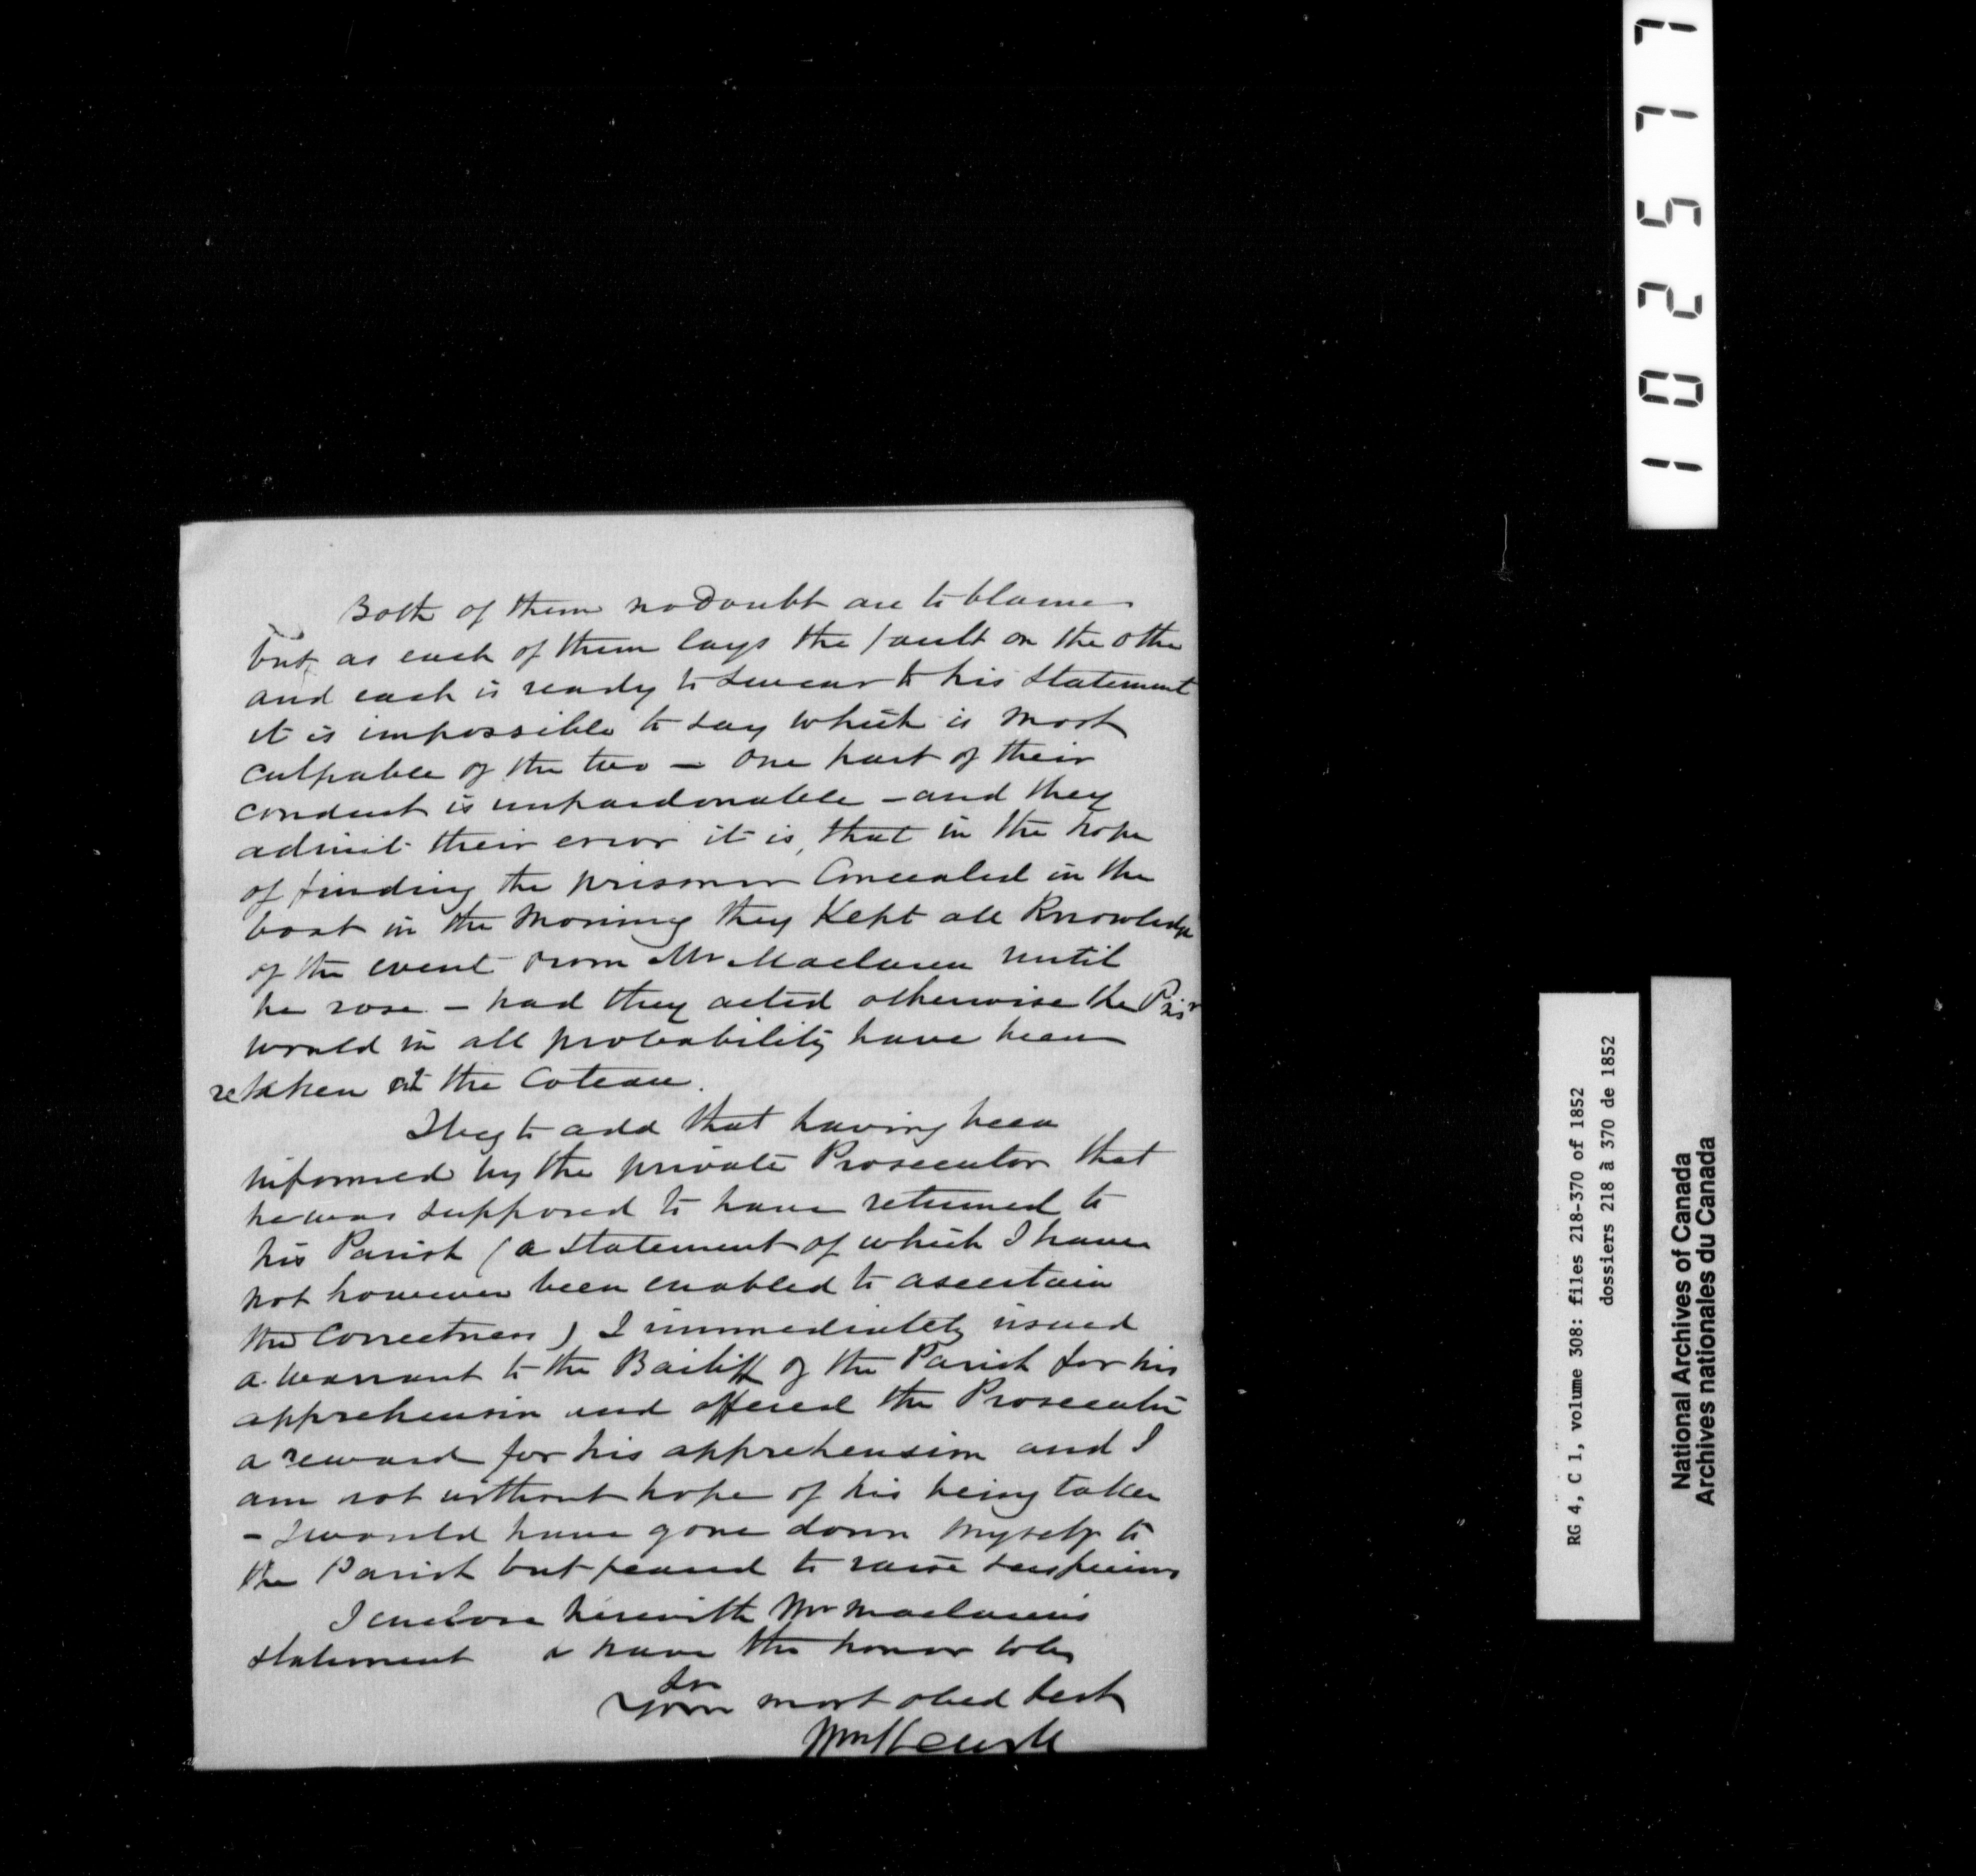 Both of them no Doubt are to blame
but as each of them lays the fault on the other
and each is ready to swear to his statement
it is impossible to say which is most
culpable of the two – one part of their
conduct is unpardonable – and they
admit their error it is, that in the hope
of finding the prisoner Concealed in the
boat in the morning they Kept all Knowledge
of the event from Mr Maclaren until
he rose – had they acted otherwise the Prisr
would in all probability have been
retaken at the Coteau.
I beg to add that having been
informed by the private Prosecutor that
he was supposed to have returned to
his Parish (a statement of which I have
not however been enabled to ascertain
the Correctness) I immediately issued
a warrant to the Bailiff of the Parish for his
apprehension and offered the Prosecutor
a reward for his apprehension and I
am not without hope of his being taken
– I would have gone down myself to
the Parish but feared to raise suspicions
I enclose herewith Mr Maclaren's
statement & have the honor to be
Sir
Your most obed Servt
Wm
102577
RG 4, C 1, volume 308: files 218-370 of 1852
dossiers 218 à 370 de 1852
National Archives of Canada
Archives nationales du Canada